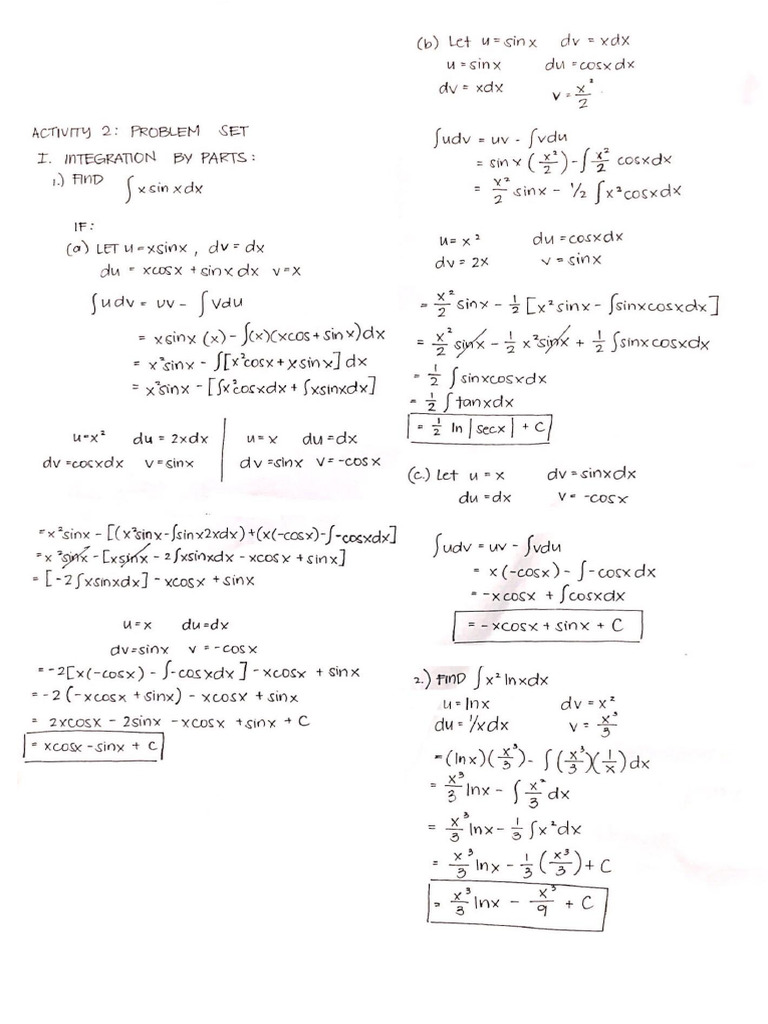 ACTIVITY 2: PROBLEM SET
I. INTEGRATION BY PARTS:
1.) FIND ∫x sin x dx
IF:
(a) LET u = xsinx , dv = dx
du = xcosx + sinx dx v = x
∫udv = uv - ∫vdu
= xsinx (x) - ∫(x)(xcos + sinx)dx
= x²sinx - ∫[x²cosx + xsinx] dx
= x²sinx - [∫x²cosxdx + ∫xsinxdx]
u = x² du = 2xdx | u = x du = dx
dv = cosxdx v = sinx | dv = sinx v = -cosx
= x²sinx - [(x²sinx - ∫sinx2xdx) + (x(-cosx) - ∫-cosxdx]
= x²sinx - [xsinx - 2∫xsinxdx - xcosx + sinx]
= [-2∫xsinxdx] - xcosx + sinx
u = x du = dx
dv = sinx v = -cosx
= -2[x(-cosx) - ∫-cosxdx] - xcosx + sinx
= -2(-xcosx + sinx) - xcosx + sinx
= 2xcosx - 2sinx - xcosx + sinx + C
= xcosx - sinx + C
(b) Let u = sinx dv = xdx
u = sinx du = cosxdx
dv = xdx v = x²/2
∫udv = uv - ∫vdu
= sinx (x²/2) - ∫x²/2 cosxdx
= x²/2 sinx - 1/2 ∫x²cosxdx
u = x² du = cosxdx
dv = 2x v = sinx
= x²/2 sinx - 1/2 [x²sinx - ∫sinxcosxdx]
= x²/2 sinx - 1/2 x²sinx + 1/2 ∫sinxcosxdx
= 1/2 ∫sinxcosxdx
= 1/2 ∫tanxdx
= 1/2 ln|secx| + C
(c.) Let u = x dv = sinxdx
du = dx v = -cosx
∫udv = uv - ∫vdu
= x(-cosx) - ∫-cosxdx
= -xcosx + ∫cosxdx
= -xcosx + sinx + C
2.) FIND ∫x² lnxdx
u = lnx dv = x²
du = 1/x dx v = x³/3
= (lnx)(x³/3) - ∫(x³/3)(1/x)dx
= x³/3 lnx - ∫x²/3 dx
= x³/3 lnx - 1/3 ∫x²dx
= x³/3 lnx - 1/3 (x³/3) + C
= x³/3 lnx - x³/9 + C